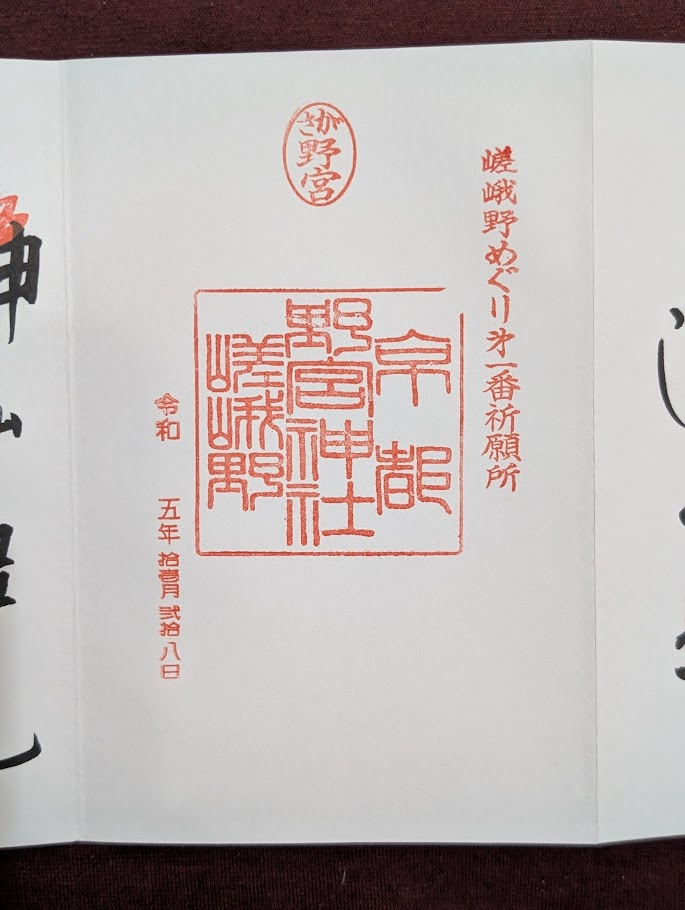 嵯峨野めぐり第一番祈願所
さが
野宮
京都
野宮神社
嵯峨野
令和 五年拾壱月弐拾八日
神